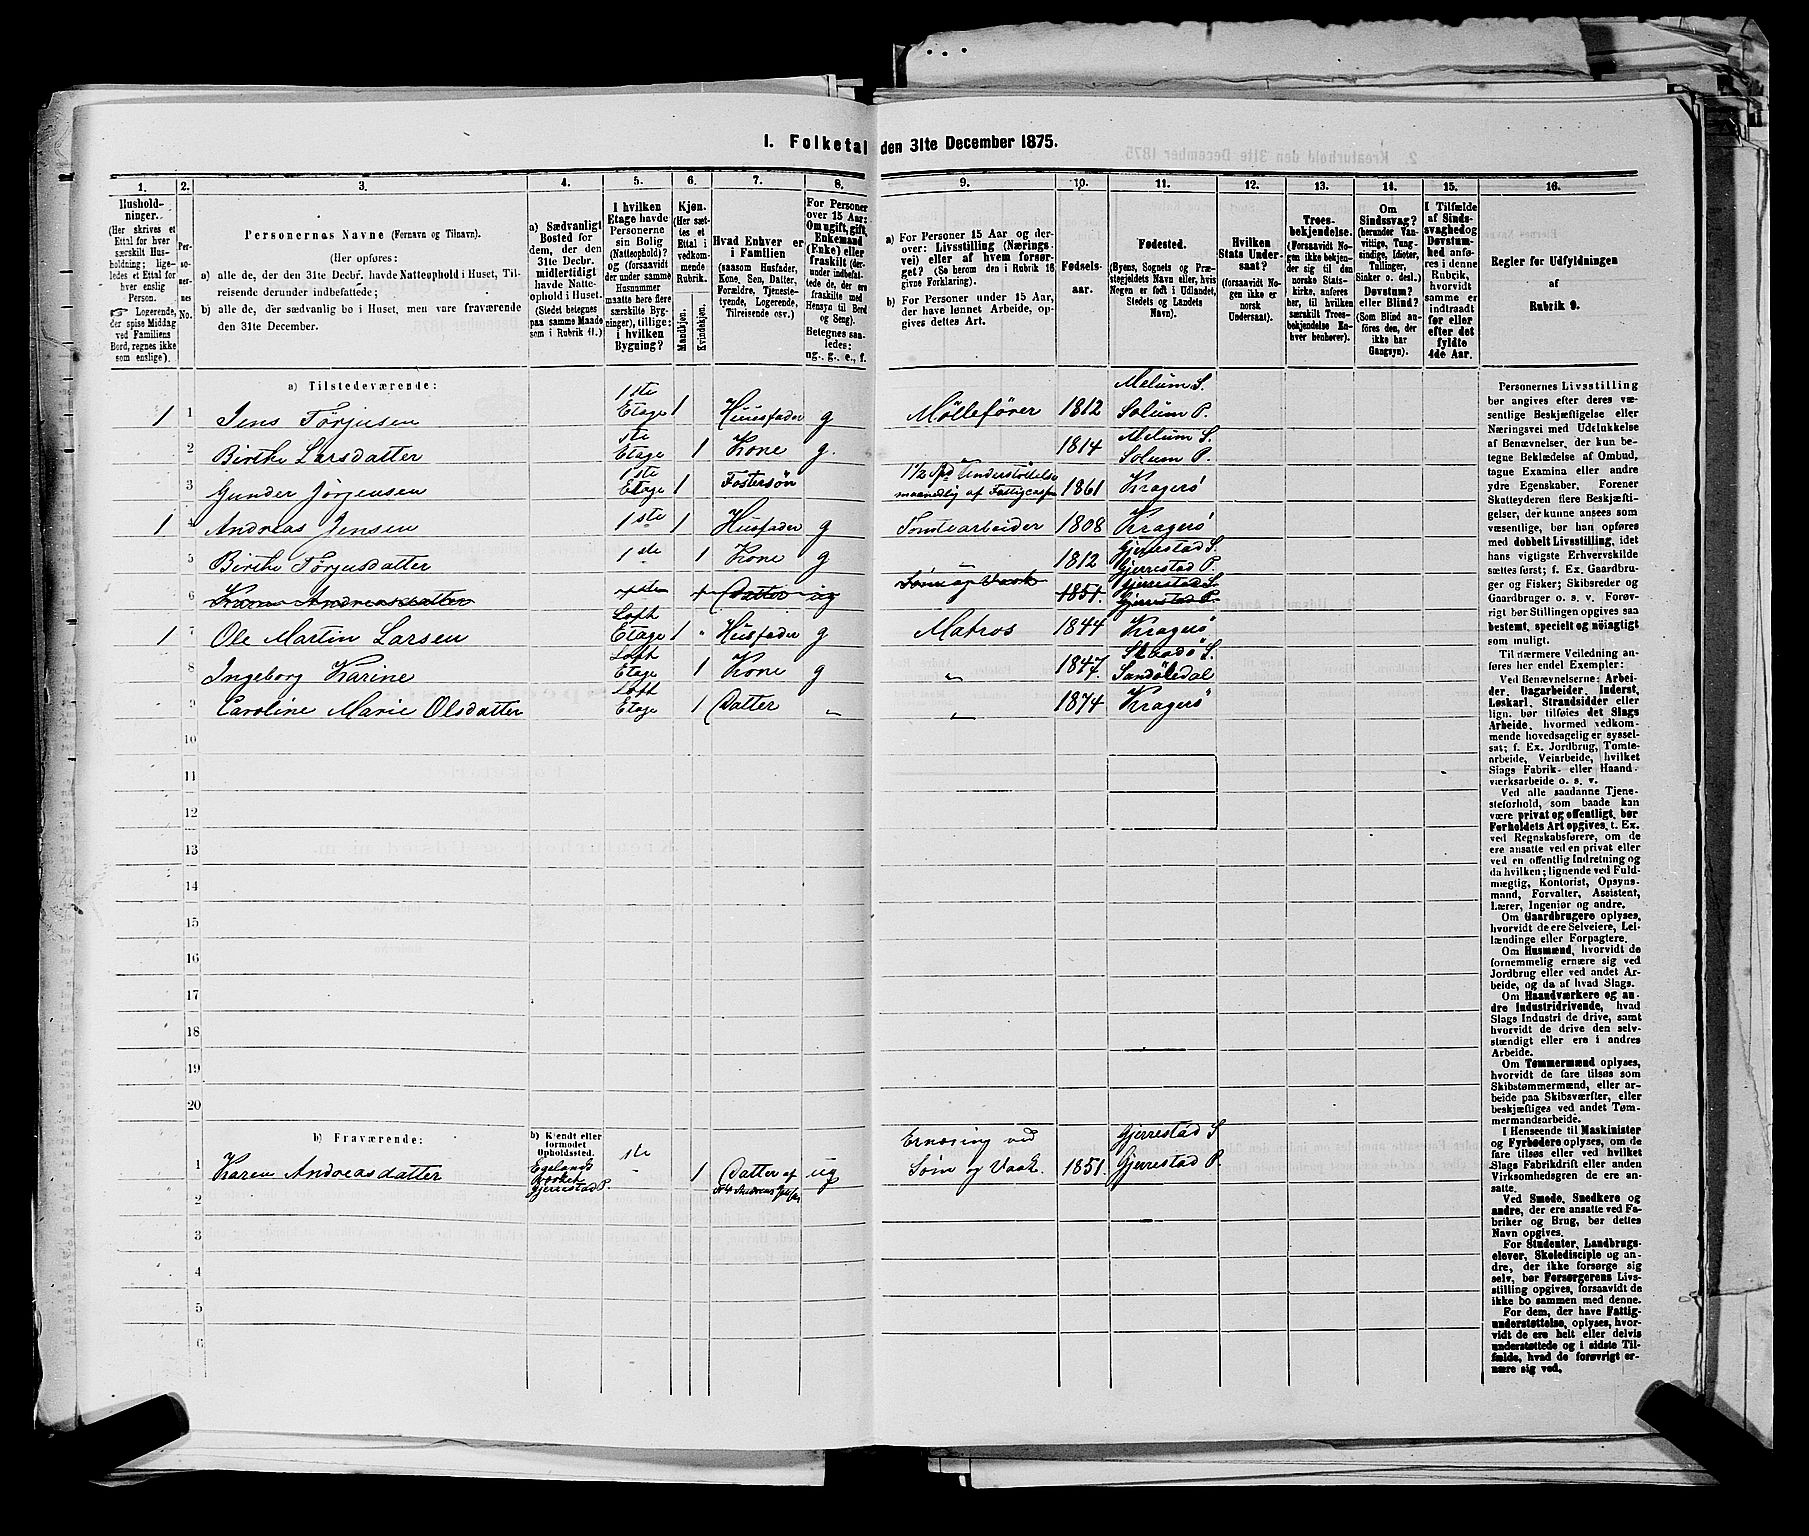 1. Folketal den 31te December 1875.
1. 2. 3. 4. 5. 6. 7. 8. 9. 10. 11. 12. 13. 14. 15. 16.
Hushold-
ninger.
(Her skrives et
Ettal for hver
særskilt Hus-
holdning; lige-
ledes et Ettal for
hver enslig
Person.
Logerende,
der spise Middag
ved Familiens
Bord, regnes ikke
som enslige.)
Per-
so-
ner-
nes
No.
Personernes Navne (Fornavn og Tilnavn).
(Her opføres:
a) alle de, der den 31te Decbr. havde Natteophold i Huset, Til-
reisende derunder indbefattede;
b) alle de, der sædvanlig bo i Huset, men vare fraværende
den 31te December.
a) Sædvanligt
Bosted for
dem, der den
31te Decbr.
midlertidigt
havde Natte-
ophold i Huset.
(Stedet betegnes
paa samme Maade
som i Rubrik 11.)
I hvilken
Etage havde
Personerne
sin Bolig
(Natteophold)?
og (forsaavidt
der under samme
Husnummer
maatte høre flere
særskilte Byg-
ninger), tillige:
i hvilken
Bygning?
Kjøn.
(Her sæt-
tes et
Ettal i
vedkom-
mende
Rubrik.
Mandkjøn.
Kvindekjøn.
Hvad Enhver er
i Familien
(saasom Husfader,
Kone, Søn, Datter,
Forældre, Tjeneste-
tyende, Logerende,
Tilreisende osv.)
For Personer
over 15 Aar:
Om ugift, gift,
Enkemand
(Enke) eller
fraskilt (der-
under indbefat-
tede de, der ere
fraskilte med
Hensyn til Bord
og Seng).
Betegnes saa-
ledes:
ug., g., e., f.
a) For Personer 15 Aar og der-
over: Livsstilling (Nærings-
vei) eller af hvem forsør-
get? (Se herom den i Rubrik 16
givne Forklaring).
b) For Personer under 15 Aar,
der have lønnet Arbeide, op-
gives dettes Art.
Fødsels-
aar.
Fødested.
(Byens, Sognets og Præ-
stegjeldets Navn eller, hvis
Nogen er født i Udlandet,
Stedets og Landets
Navn).
Hvilken
Stats Under-
saat?
(forsaavidt No-
gen ikke er
norsk
Undersaat).
Troes-
bekjendelse.
(Forsaavidt No-
gen ikke bekjen-
der sig til den
norske Stats-
kirke, anføres
her, til hvilken
særskilt Troes-
bekjendelse En-
hver henhører).
Om
Sindssvag?
(herunder Van-
vittige, Tung-
sindige, Idioter,
Tullinger,
Sinker o. desl.)
Døvstum?
eller Blind?
(Som Blind an-
føres den, der
ikke har
Gangsyn).
I Tilfælde
af Sinds-
svaghed og
Døvstum-
hed anfø-
res i denne
Rubrik,
hvorvidt
samme er
indtraadt
før eller
efter det
fyldte
4de Aar.
Regler for Udfyldningen
af
Rubrik 9.
a) Tilstedeværende:
1 1 Jens Tørjusen 1ste Etage 1 Huusfader g Møllefører 1812 Melum S. Solum P.
2 Birthe Larsdatter 1ste Etage 1 Kone g. 1814 Melum S. Solum P.
3 Gunder Jørgensen 1ste Etage 1 Fostersøn 1 1/2 Spd Understøttelse maanedlig af Fattigcassen 1861 Kragerø
1 4 Andreas Jensen 1ste 1 Husfader g Tomtearbeider 1808 Kragerø
5 Birthe Tørjusdatter 1ste 1 Kone g 1812 Gjerrestad S. Gjerrestad P.
6 Karen Andreasdatter 1 Datter ug Søm og Vask 1851. Gjerrestad S. Gjerrestad P.
1 7 Ole Martin Larsen Loft Etage 1 " Husfader g Matros 1844 Kragerø
8 Ingeborg Karine Loft Etage 1 Kone g " 1847. Skaadø S. Sandøkedal
9 Caroline Marie Olsdatter Loft Etage 1 Datter " " 1874 Kragerø
10
11
12
13
14
15
16
17
18
19
20
b) Fraværende:
b) Kjendt eller
formodet
Opholdssted.
1 Karen Andreasdatter Egelands Værket Gjerrestad P. 1ste 1 Datter af No 4 Andreas Jensen ug Ernæring ved Søm og Vask. 1851. Gjerrestad S Gjerrestad P.
2
3
4
5
6
Personernes Livsstilling
bør angives efter deres væ-
sentlige Beskjæftigelse eller
Næringsvei med Udelukkelse
af Benævnelser, der kun be-
tegne Beklædelse af Ombud,
tagne Examina eller andre
ydre Egenskaber. Forener
Skatteyderen flere Beskjæfti-
gelser, der kunne ansees som
væsentlige, bør han opføres
med dobbelt Livsstilling, idet
hans vigtigste Erhvervskilde
sættes først; f. Ex. Gaardbru-
ger og Fisker; Skibsreder og
Gaardbruger o. s. v. Forøv-
rigt bør Stillingen opgives saa
bestemt, specielt og nøiagtigt
som muligt.
Til nærmere Veiledning an-
føres her endel Exempler:
Ved Benævnelserne: Arbei-
der, Dagarbeider, Inderst,
Løskarl, Strandsidder eller
lign. bør tilføies det Slags
Arbeide, hvormed vedkom-
mende hovedsagelig er syssel-
sat; f. Ex. Jordbrug, Tomte-
arbeide, Veiarbeide, hvilket
Slags Fabrik- eller Haand-
værksarbeide o. s. v.
Ved alle saadanne Tjene-
steforhold, som baade kan
være privat og offentligt, bør
Forholdets Art opgives, t. Ex.
ved Regnskabsførere, om de
ere ansatte ved en privat eller
ved en offentlig Indretning og
da hvilken; lignende ved Fuld-
mægtig, Kontorist, Opsyns-
mand, Forvalter, Assistent,
Lærer, Ingeniør og andre.
Om Gaardbrugere oplyses,
hvorvidt de ere Selveiere, Lei-
lændinge eller Forpagtere.
Om Husmænd, hvorvidt de
fornemmelig ernære sig ved
Jordbrug eller ved andet Ar-
beide, og da af hvad Slags.
Om Haandværkere og an-
dre Industridrivende, hvad
Slags Industri de drive, samt
hvorvidt de drive den selv-
stændigt eller ere i andres
Arbeide.
Om Tømmermænd oplyses,
hvorvidt de fare tilsøs som
Skibstømmermænd, eller ar-
beide paa Skibsværfter, eller
beskjæftiges ved andet Tøm-
mermandsarbeide.
I Henseende til Maskinister
og Fyrbødere oplyses, om de
fare tilsøs eller ved hvilket
Slags Fabrikdrift eller anden
Virksomhedsgren de ere an-
satte.
Ved Smede, Snedkere og
andre, der ere ansatte ved Fa-
briker og Brug, bør dettes
Navn opgives.
For Studenter, Landbrugs-
elever, Skoledisciple og an-
dre, der ikke forsørge sig
selv, bør Forsørgerens Livs-
stilling opgives, forsaavidt de
ikke bo sammen med denne.
For dem, der have Fattig-
understøttelse, oplyses, hvor-
vidt de ere helt eller delvis
understøttede og i sidste Til-
fælde, hvad de forøvrigt er-
nære sig ved.